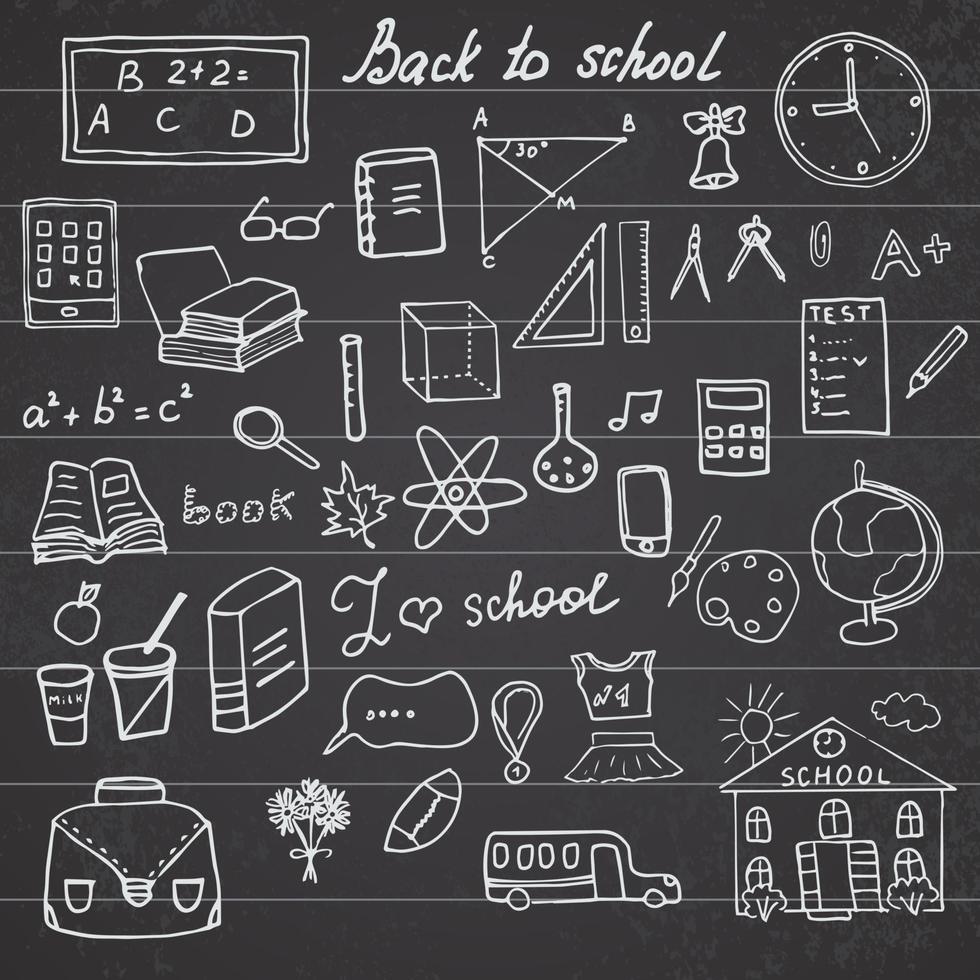 Back to school
B 2+2=
A C D
A B
30°
M
C
A+
TEST
1.
2.
3.
4.
5.
a²+b²=c²
book
I ♡ school
Milk
N1
1
SCHOOL